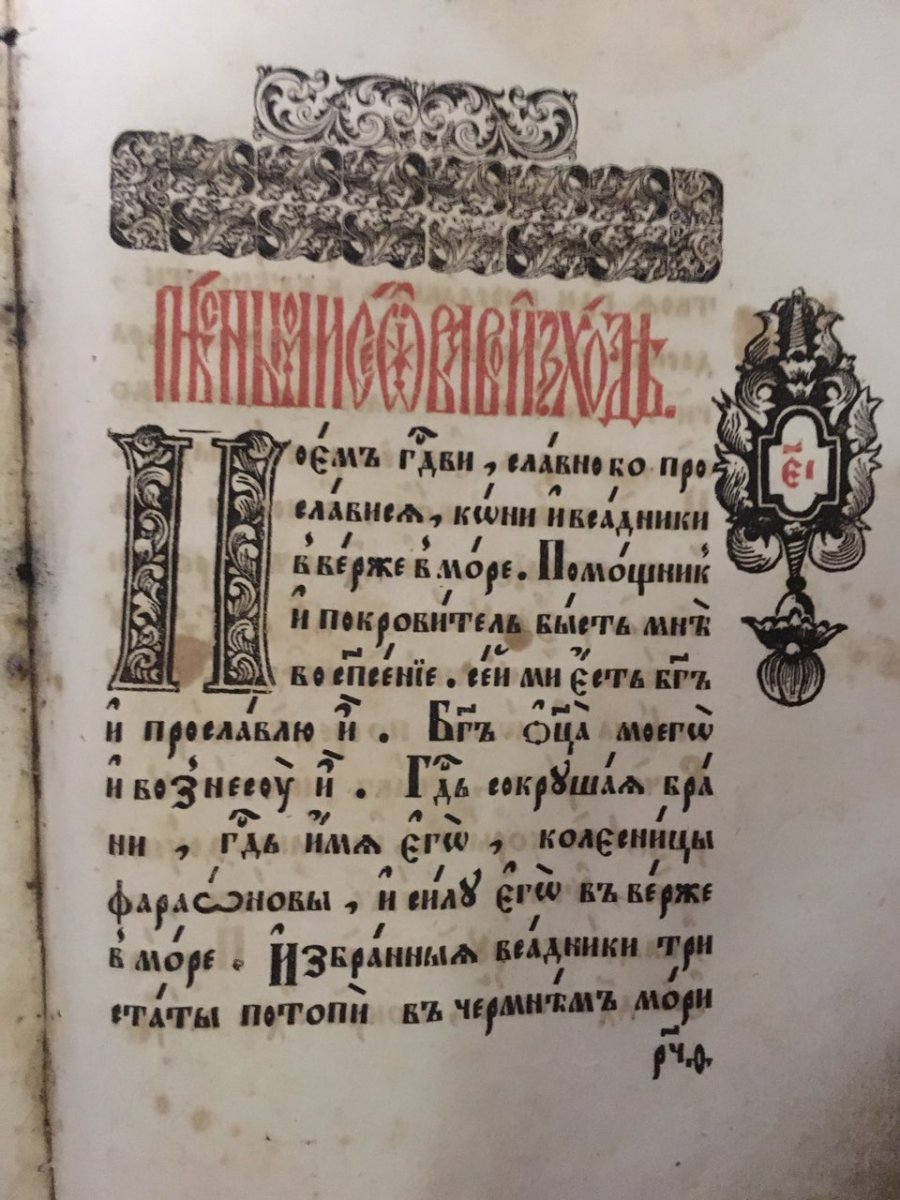 Пѣснь мѡисеѡва в̾ и҆зхо́дѣ.
Пое́мъ гд҃ви, сла́вно бо про-
сла́вися, кѡ́ни и҆ вса́дники
в̾ ве́рже в̾ мо́ре. Помо́щник̾
и҆ покрови́тель бы́сть мнѣ̀
во сп҃се́нїе. се́й ми є҆́сть бг҃ъ
и҆ просла́влю и҆̀. Бг҃ъ ѻ҆ц҃а̀ моегѡ̀
и҆ воз̾несоу̀ и҆̀. Гд҃ь сокруша́я бра́
ни, гд҃ь и҆́мѧ є҆гѡ̀, колєсни́цы
фараѡновы, и҆ си́лу є҆гѡ̀ въ ве́рже
в̾ мо́ре. И҆збра́нныѧ вса́дники три
ста́ты потопѝ въ чермнѣ́мъ мо́ри
є҃і
рч҃.ѳ.